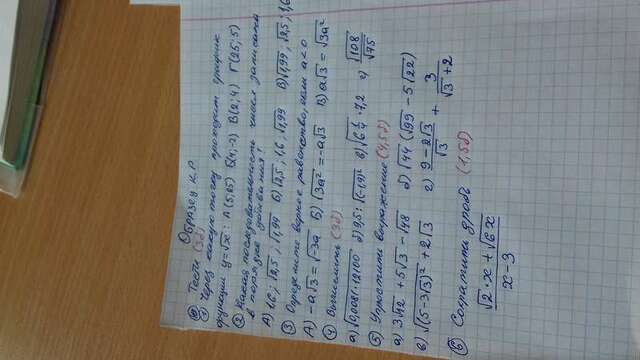 Образец К Р
① Тесты (3б)
1 Через какую точку проходит график
функции y=√x : А (5;25) Б(4;-2) В(2;4) Г(25;5)
② Какая последовательность чисел записана
в порядке убывания?
А) 1,6 ; √2,5 ; √1,99 Б) √2,5 ; 1,6 ; √1,99 В) √1,99 ; √2,5 ; 1,6
③ Определите верное равенство, если a<0
А) -a√3 = √-3a Б) √3a² = -a√3 В) a√3 = √3a²
④ Вычислить (3б)
а) √0,0081·12100 б) 9,5 : √(-1,9)² в) √6 1/4 · 7,2 г) √108/√75
⑤ Упростить выражение (4,5б)
а) 3√12 + 5√3 - √48 б) √44 (√99 - 5√22)
в) √(5-3√3)² + 2√3 г) 9-2√3/√3 + 3/√3+2
⑥ Сократить дробь (1,5б)
√2·x + √6x
x-3